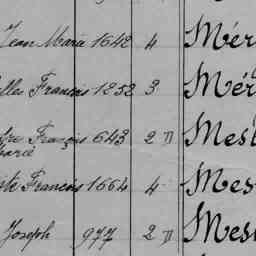 Jean Marie 1642 4 Mér
François 1252 3 Mér
François 643 2 D Mes
Marie
François 1664 4 Mes
Joseph 977 2 D Mes